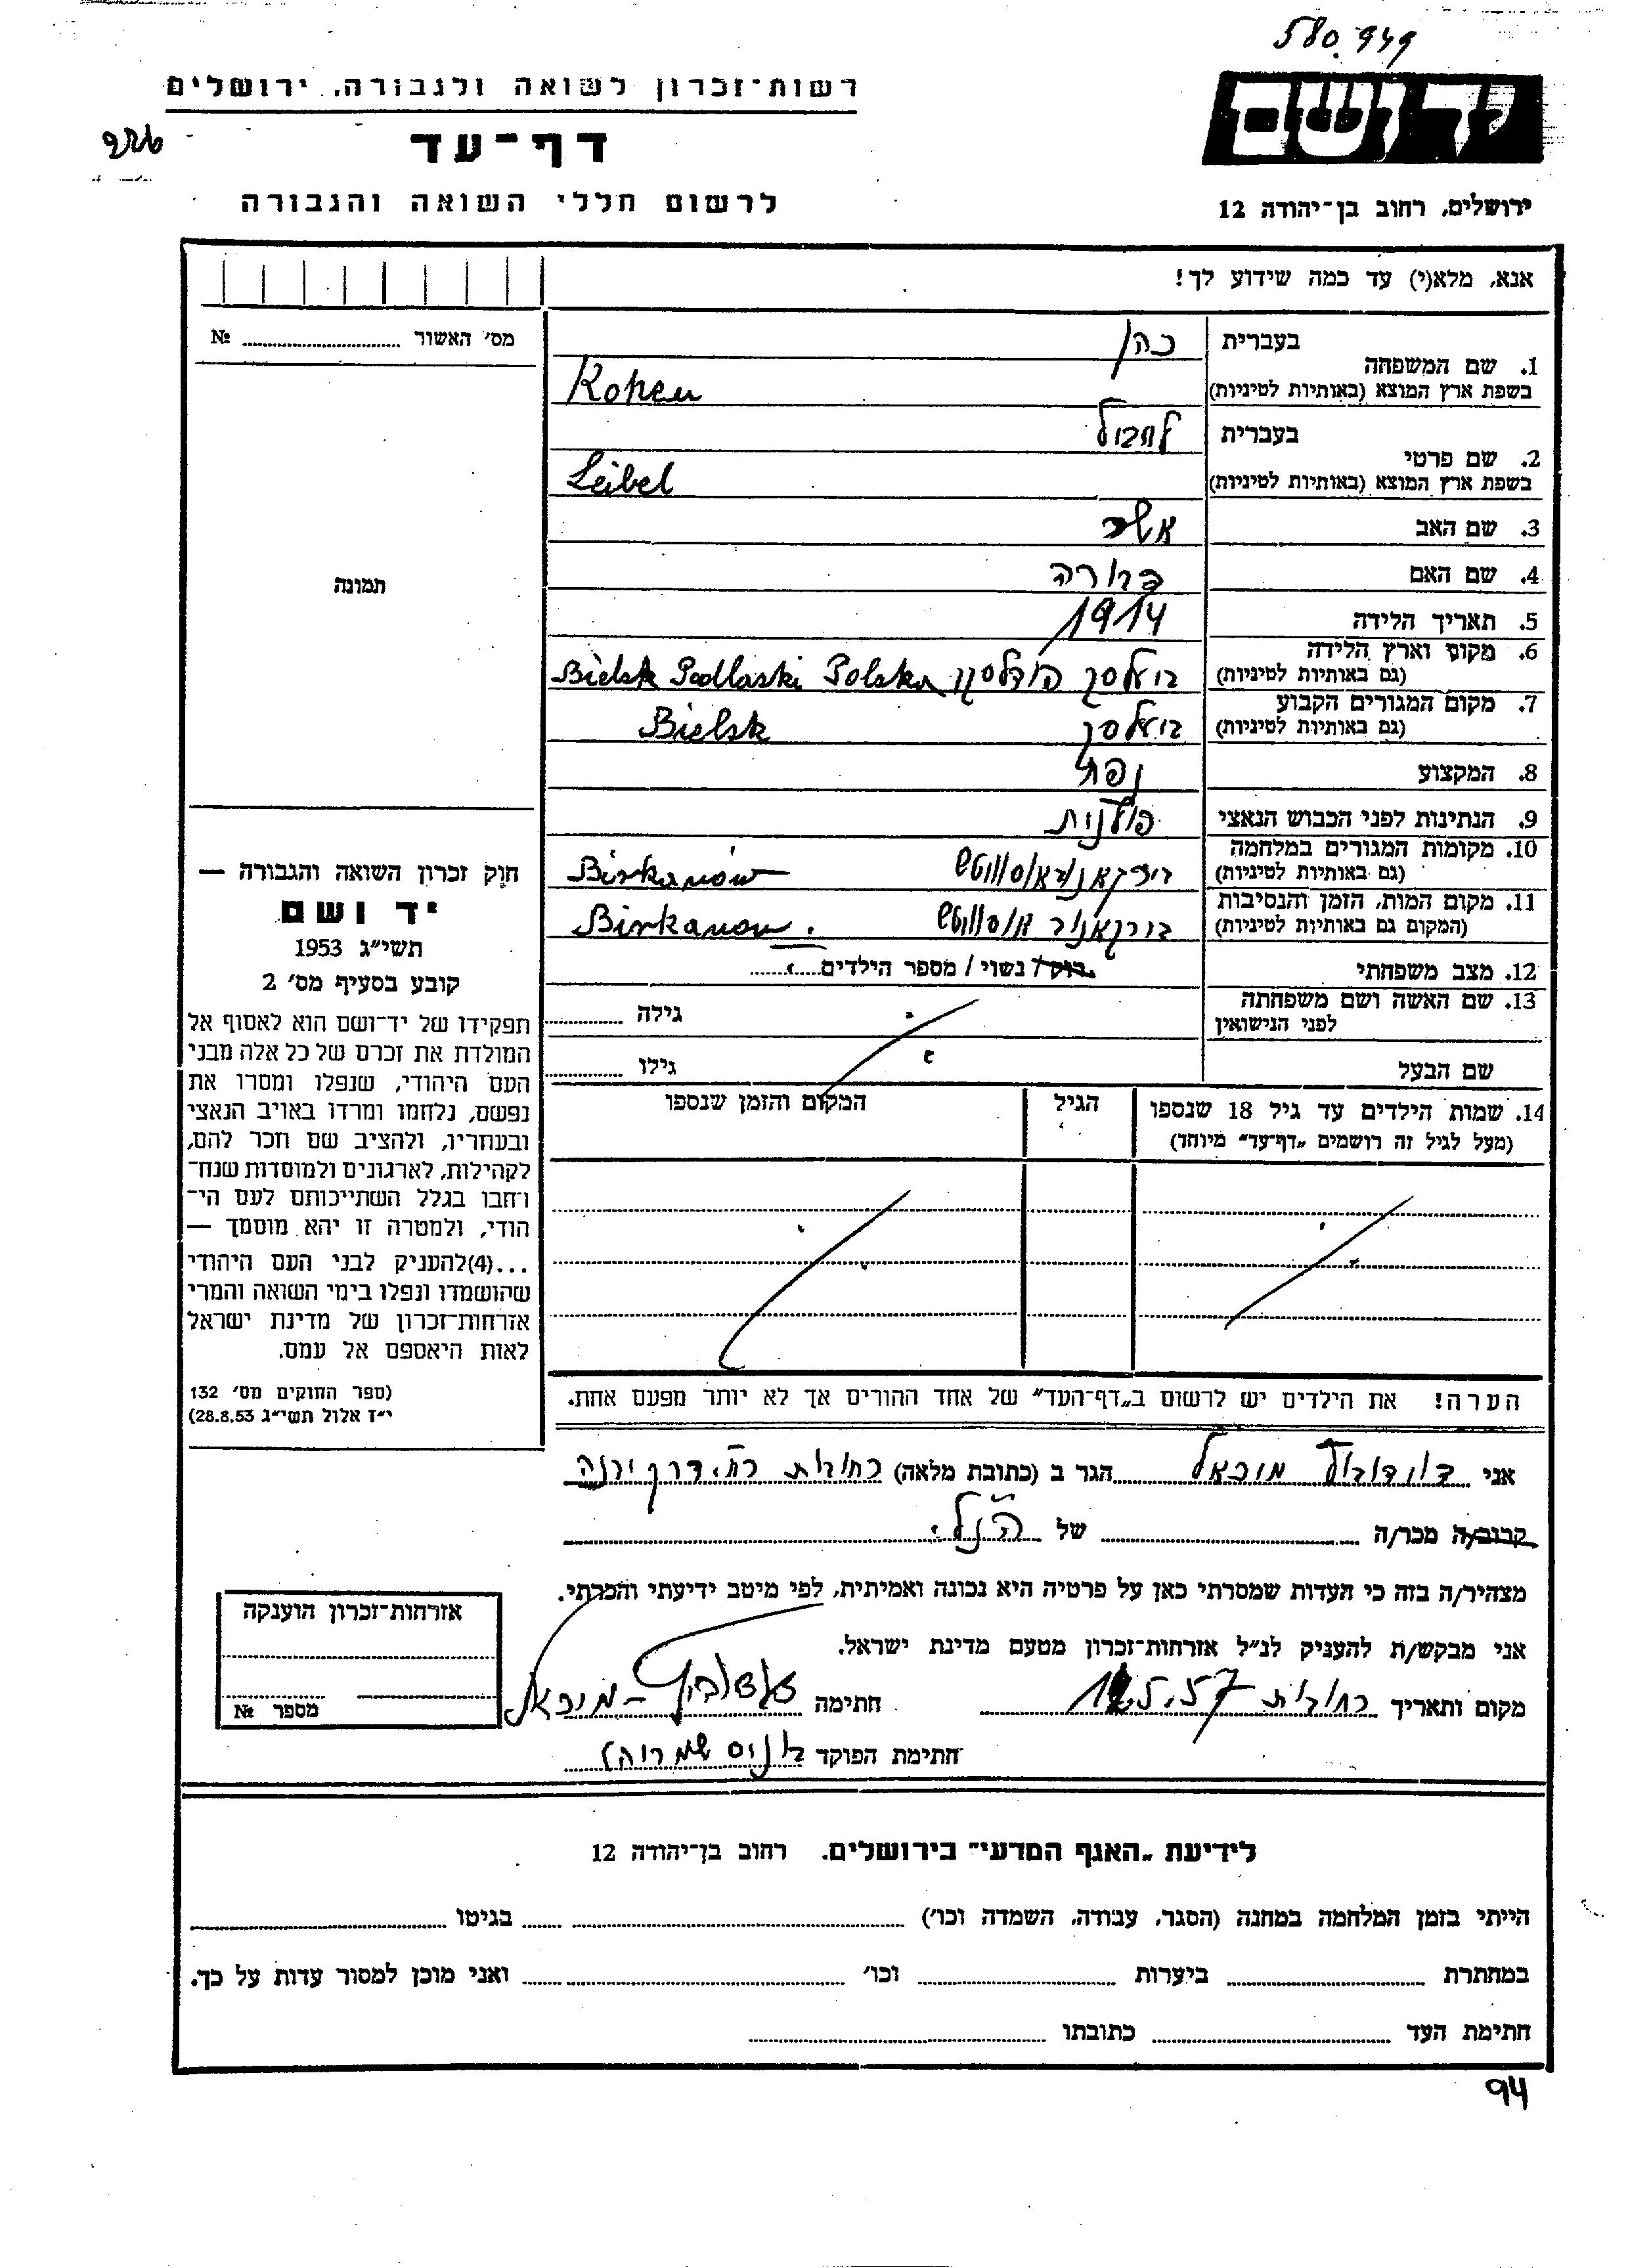 580.949
רשות־זכרון לשואה ולגבורה, ירושלים
דף־עד
לרשום חללי השואה והגבורה
יד ושם
ירושלים, רחוב בן־יהודה 12
אנא, מלא(י) עד כמה שידוע לך!
מס׳ האשור № 
1. שם המשפחה בעברית כהן
בשפת ארץ המוצא (באותיות לטיניות) Kohen
2. שם פרטי בעברית
בשפת ארץ המוצא (באותיות לטיניות) Leibel
3. שם האב אשר
4. שם האם
5. תאריך הלידה 1914
6. מקום וארץ הלידה (גם באותיות לטיניות) ביעלסק פודלסקי Bielsk Podlaski Polska
7. מקום המגורים הקבוע (גם באותיות לטיניות) ביעלסק Bielsk
8. המקצוע נפח
9. הנתינות לפני הכבוש הנאצי פולנית
10. מקומות המגורים במלחמה (גם באותיות לטיניות) Birkanów
11. מקום המות, הזמן והנסיבות (המקום גם באותיות לטיניות) Birkanow.
12. מצב משפחתי רוק/ נשוי / מספר הילדים
13. שם האשה ושם משפחתה לפני הנישואין גילה
שם הבעל גילו
14. שמות הילדים עד גיל 18 שנספו
(מעל לגיל זה רושמים „דף־עד” מיוחד)
הגיל
המקום והזמן שנספו
הערה! את הילדים יש לרשום ב„דף־העד” של אחד ההורים אך לא יותר מפעם אחת.
תמונה
חוק זכרון השואה והגבורה —
יד ושם
תשי״ג 1953
קובע בסעיף מס׳ 2
תפקידו של יד־ושם הוא לאסוף אל
המולדת את זכרם של כל אלה מבני
העם היהודי, שנפלו ומסרו את
נפשם, נלחמו ומרדו באויב הנאצי
ובעוזריו, ולהציב שם וזכר להם,
לקהילות, לארגונים ולמוסדות שנח־
רחבו בגלל השתייכותם לעם הי־
הודי, ולמטרה זו יהא מוסמך —
...(4)להעניק לבני העם היהודי
שהושמדו ונפלו בימי השואה והמרי
אזרחות־זכרון של מדינת ישראל
לאות היאספם אל עמם.
(ספר החוקים מס׳ 132
י״ז אלול תשי״ג 28.8.53)
אני מיכאל הגר ב (כתובת מלאה) רחובות רח. דרך יבנה
קרוב/ה מכר/ה של הנ״ל.
מצהיר/ה בזה כי העדות שמסרתי כאן על פרטיה היא נכונה ואמיתית, לפי מיטב ידיעתי והכרתי.
אני מבקש/ת להעניק לנ״ל אזרחות־זכרון מטעם מדינת ישראל.
מקום ותאריך רחובות 5.57 חתימה מיכאל
חתימת הפוקד
אזרחות־זכרון הוענקה
מספר №
לידיעת „האגף המדעי” בירושלים. רחוב בן־יהודה 12
הייתי בזמן המלחמה במחנה (הסגר, עבודה, השמדה וכו׳) בגיטו
במחתרת ביערות וכו׳ ואני מוכן למסור עדות על כך.
חתימת העד כתובתו
94